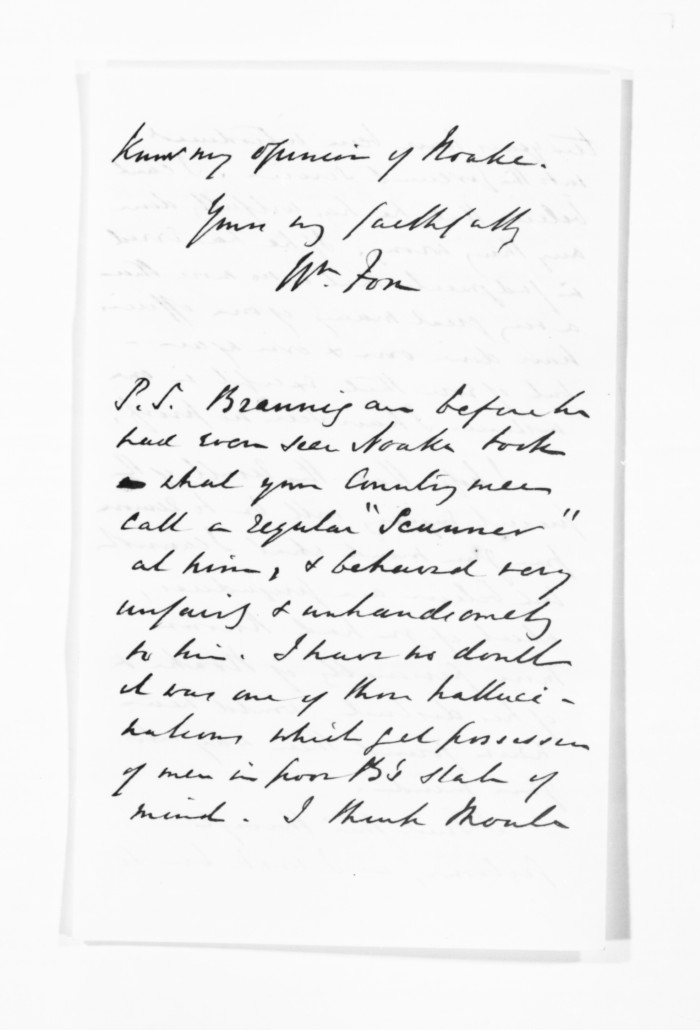 Know my opinion of Noake.
Yours very faithfully
Wm. Fox
P.S. Brannigan before he
had even seen Noake took
what your Countrymen
call a regular "Scunner"
at him, & behaved very
unfairly & unhandsomely
to him. I have no doubt
it was one of those halluci-
nations which get possession
of men in poor B's state of
mind. I think